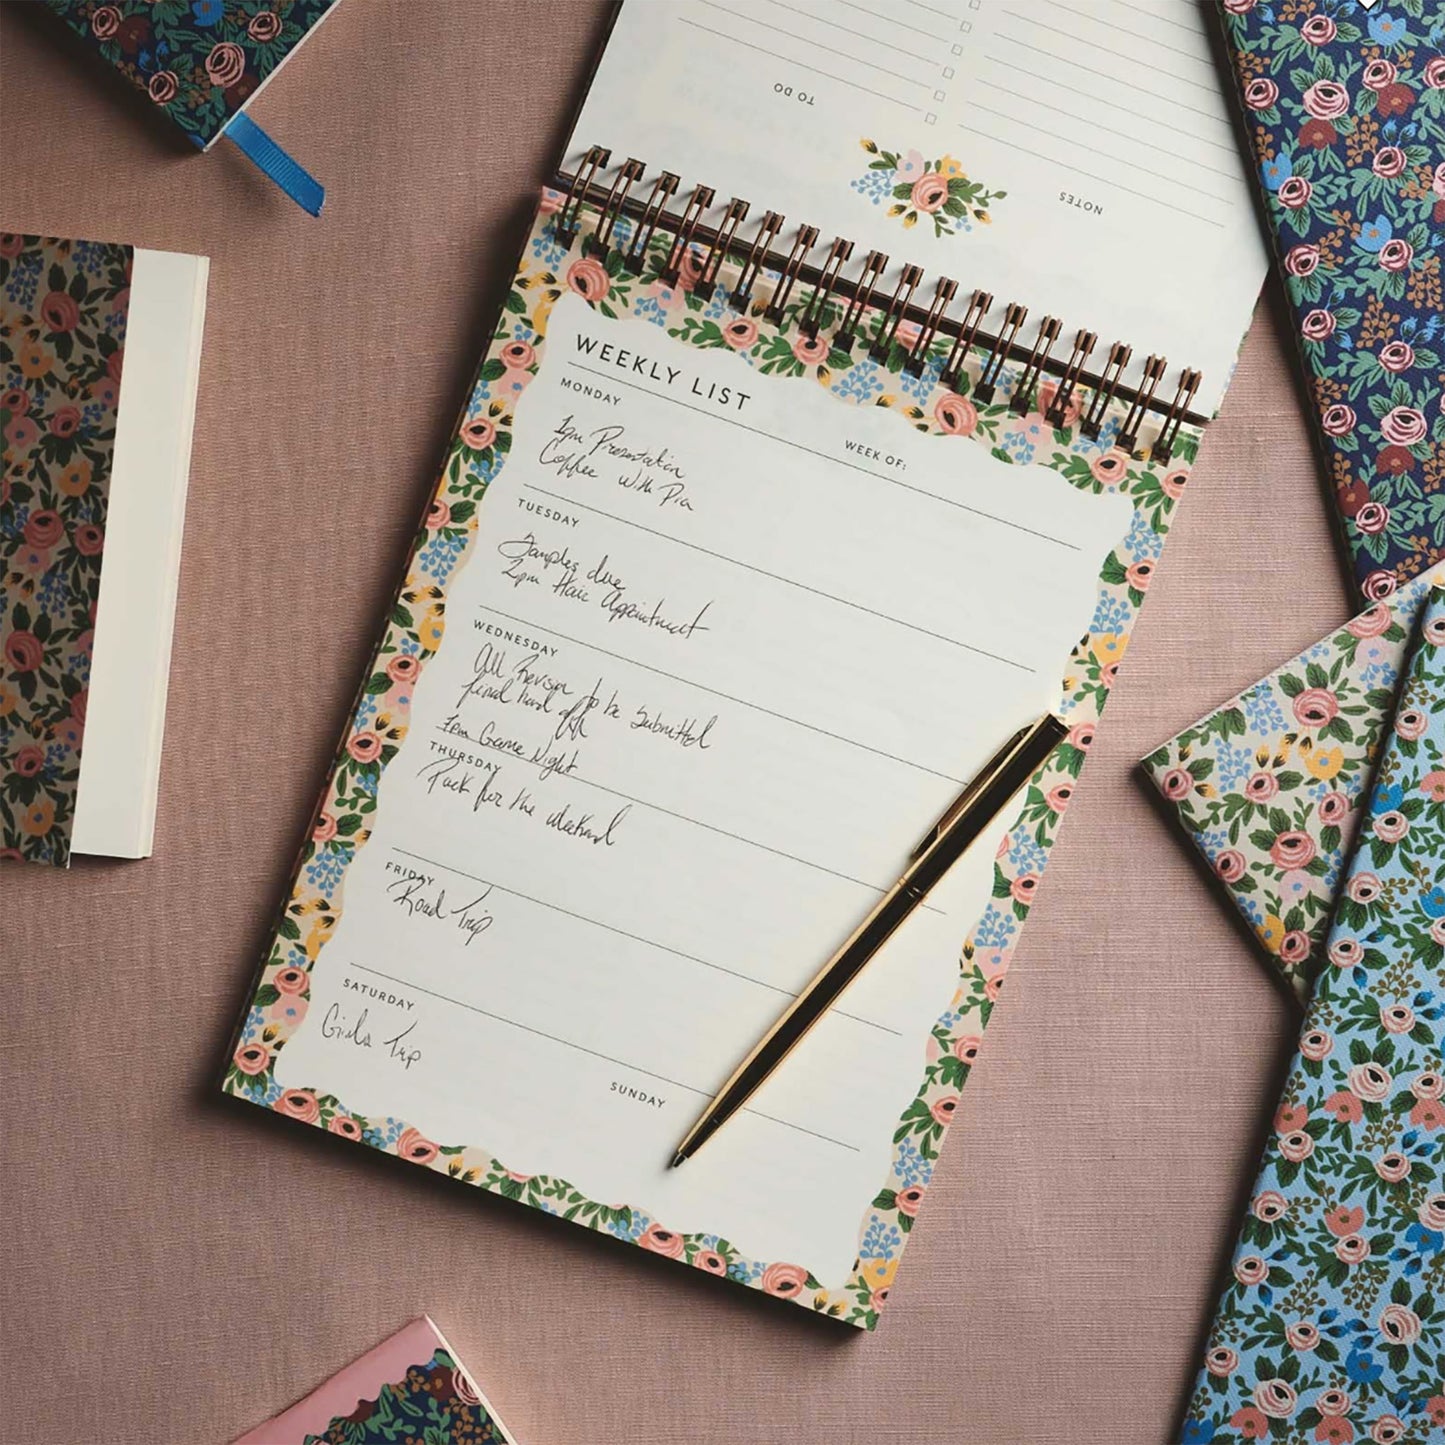 TO DO
NOTES
WEEKLY LIST
MONDAY
WEEK OF:
1pm Presentation
Coffee with Pia
TUESDAY
Samples due
2pm Hair Appointment
WEDNESDAY
All Revison to be Submitted
final hand off
7pm Game Night
THURSDAY
Pack for the weekend
FRIDAY
Road Trip
SATURDAY
Girls Trip
SUNDAY